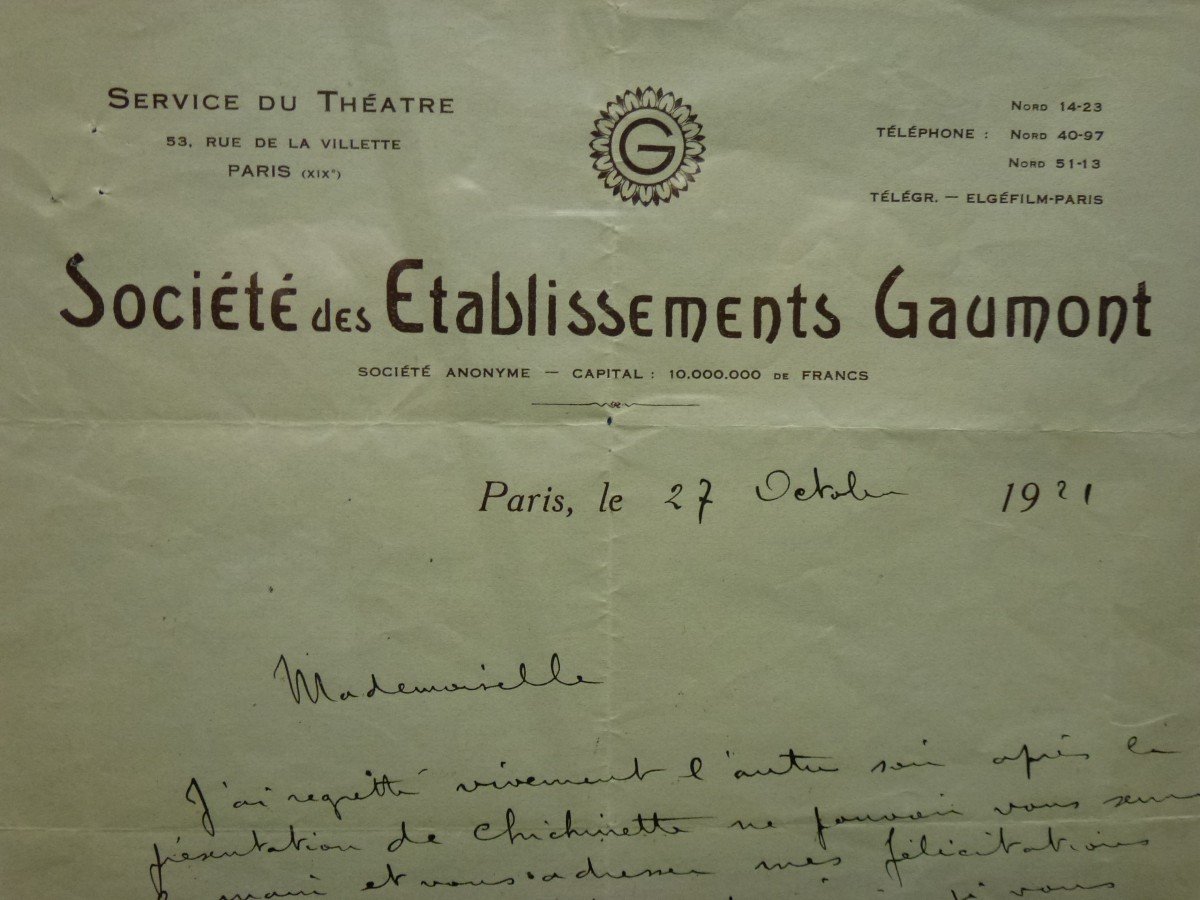 SERVICE DU THÉATRE
53, RUE DE LA VILLETTE
PARIS (XIXe)
G
NORD 14-23
TÉLÉPHONE : NORD 40-97
NORD 51-13
TÉLÉGR. — ELGÉFILM-PARIS
Société des Etablissements Gaumont
SOCIÉTÉ ANONYME — CAPITAL : 10.000.000 DE FRANCS
Paris, le 27 Octobre 1921
Mademoiselle
J'ai regretté vivement l'autre soir après la
présentation de Chichinette ne pouvoir vous serrer
la main et vous adresser mes félicitations
si vous